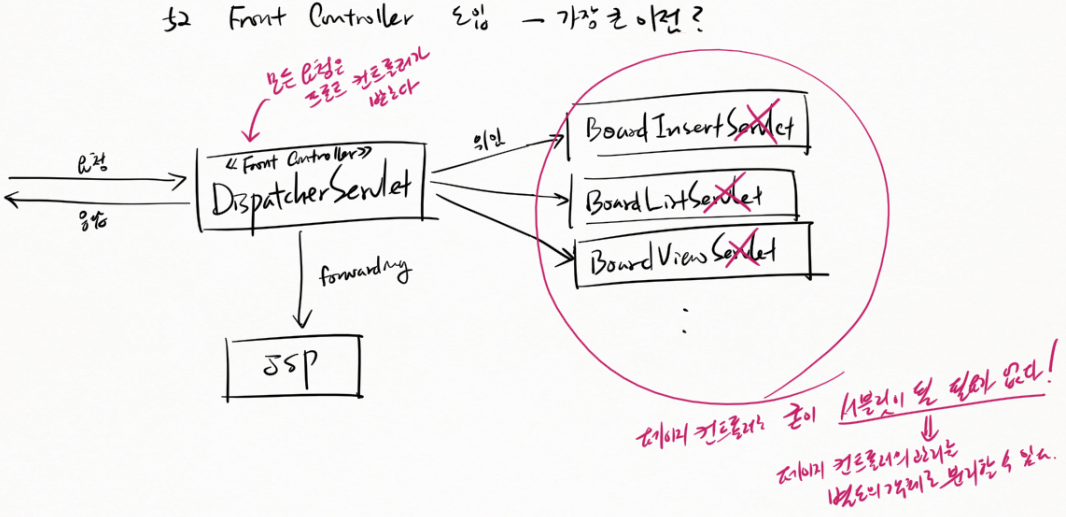 §2 Front Controller 도입 — 가장 큰 이점?
모든 요청은
프론트 컨트롤러가
받는다
요청
응답
≪Front Controller≫
DispatcherServlet
위임
BoardInsertServlet
BoardListServlet
BoardViewServlet
⋮
forwarding
JSP
페이지 컨트롤러는 굳이 서블릿이 될 필요가 없다!
⇓
페이지 컨트롤러의 관리는
별도의 객체로 분리할 수 있다.